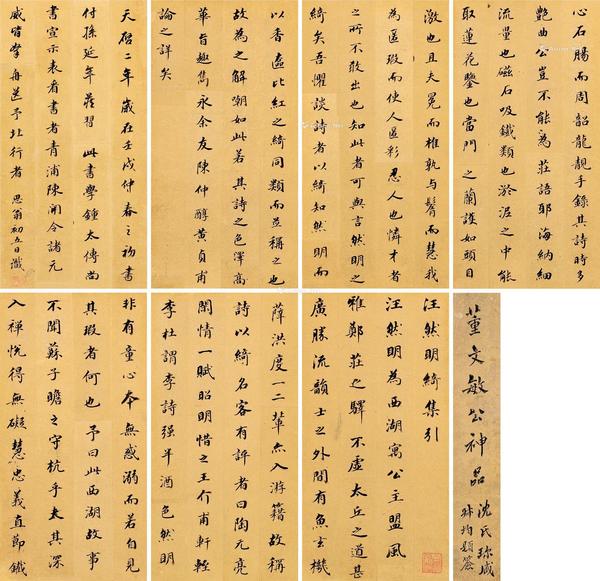 董文敏公神品
沈氏珍藏
題簽
汪然明綺集引
汪然明為西湖寓公主盟風
雅鄭莊之驛不虛太丘之道甚
廣勝流韻士之外間有魚玄機
薛洪度一二輩亦入游籍故稱
詩以綺名客有評者曰陶元亮
閑情一賦昭明惜之王介甫軒輊
李杜謂李詩强半酒色然明
非有童心本無惑溺而若自見
其瑕者何也予曰此西湖故事
不聞蘇子瞻之守杭乎夫其深
入禪悅得無礙慧忠義直節鐵
心石腸而周韶龍靚手錄其詩時多
艷曲公豈不能為莊語耶海納細
流量也磁石吸鐵類也淤泥之中能
取蓮花鑒也當門之蘭護如頭目
激也且夫冕而椎孰與髯而慧我
為匿瑕而使人匿彩忍人也憐才者
之所不敢出也知此者可與言然明之
綺矣吾懼談詩者以綺知然明而
以香奩比紅之綺同類而並稱之也
故為之解嘲如此若其詩之色澤高
華旨趣雋永余友陳仲醇黃貞甫
論之詳矣
天啓二年歲在壬戌仲春之初書
付孫延年莊習此書學鍾太傅尚
書宣示表看書者青浦陳開今諸元
威皆掌舟送予北行者 思翁初五日識